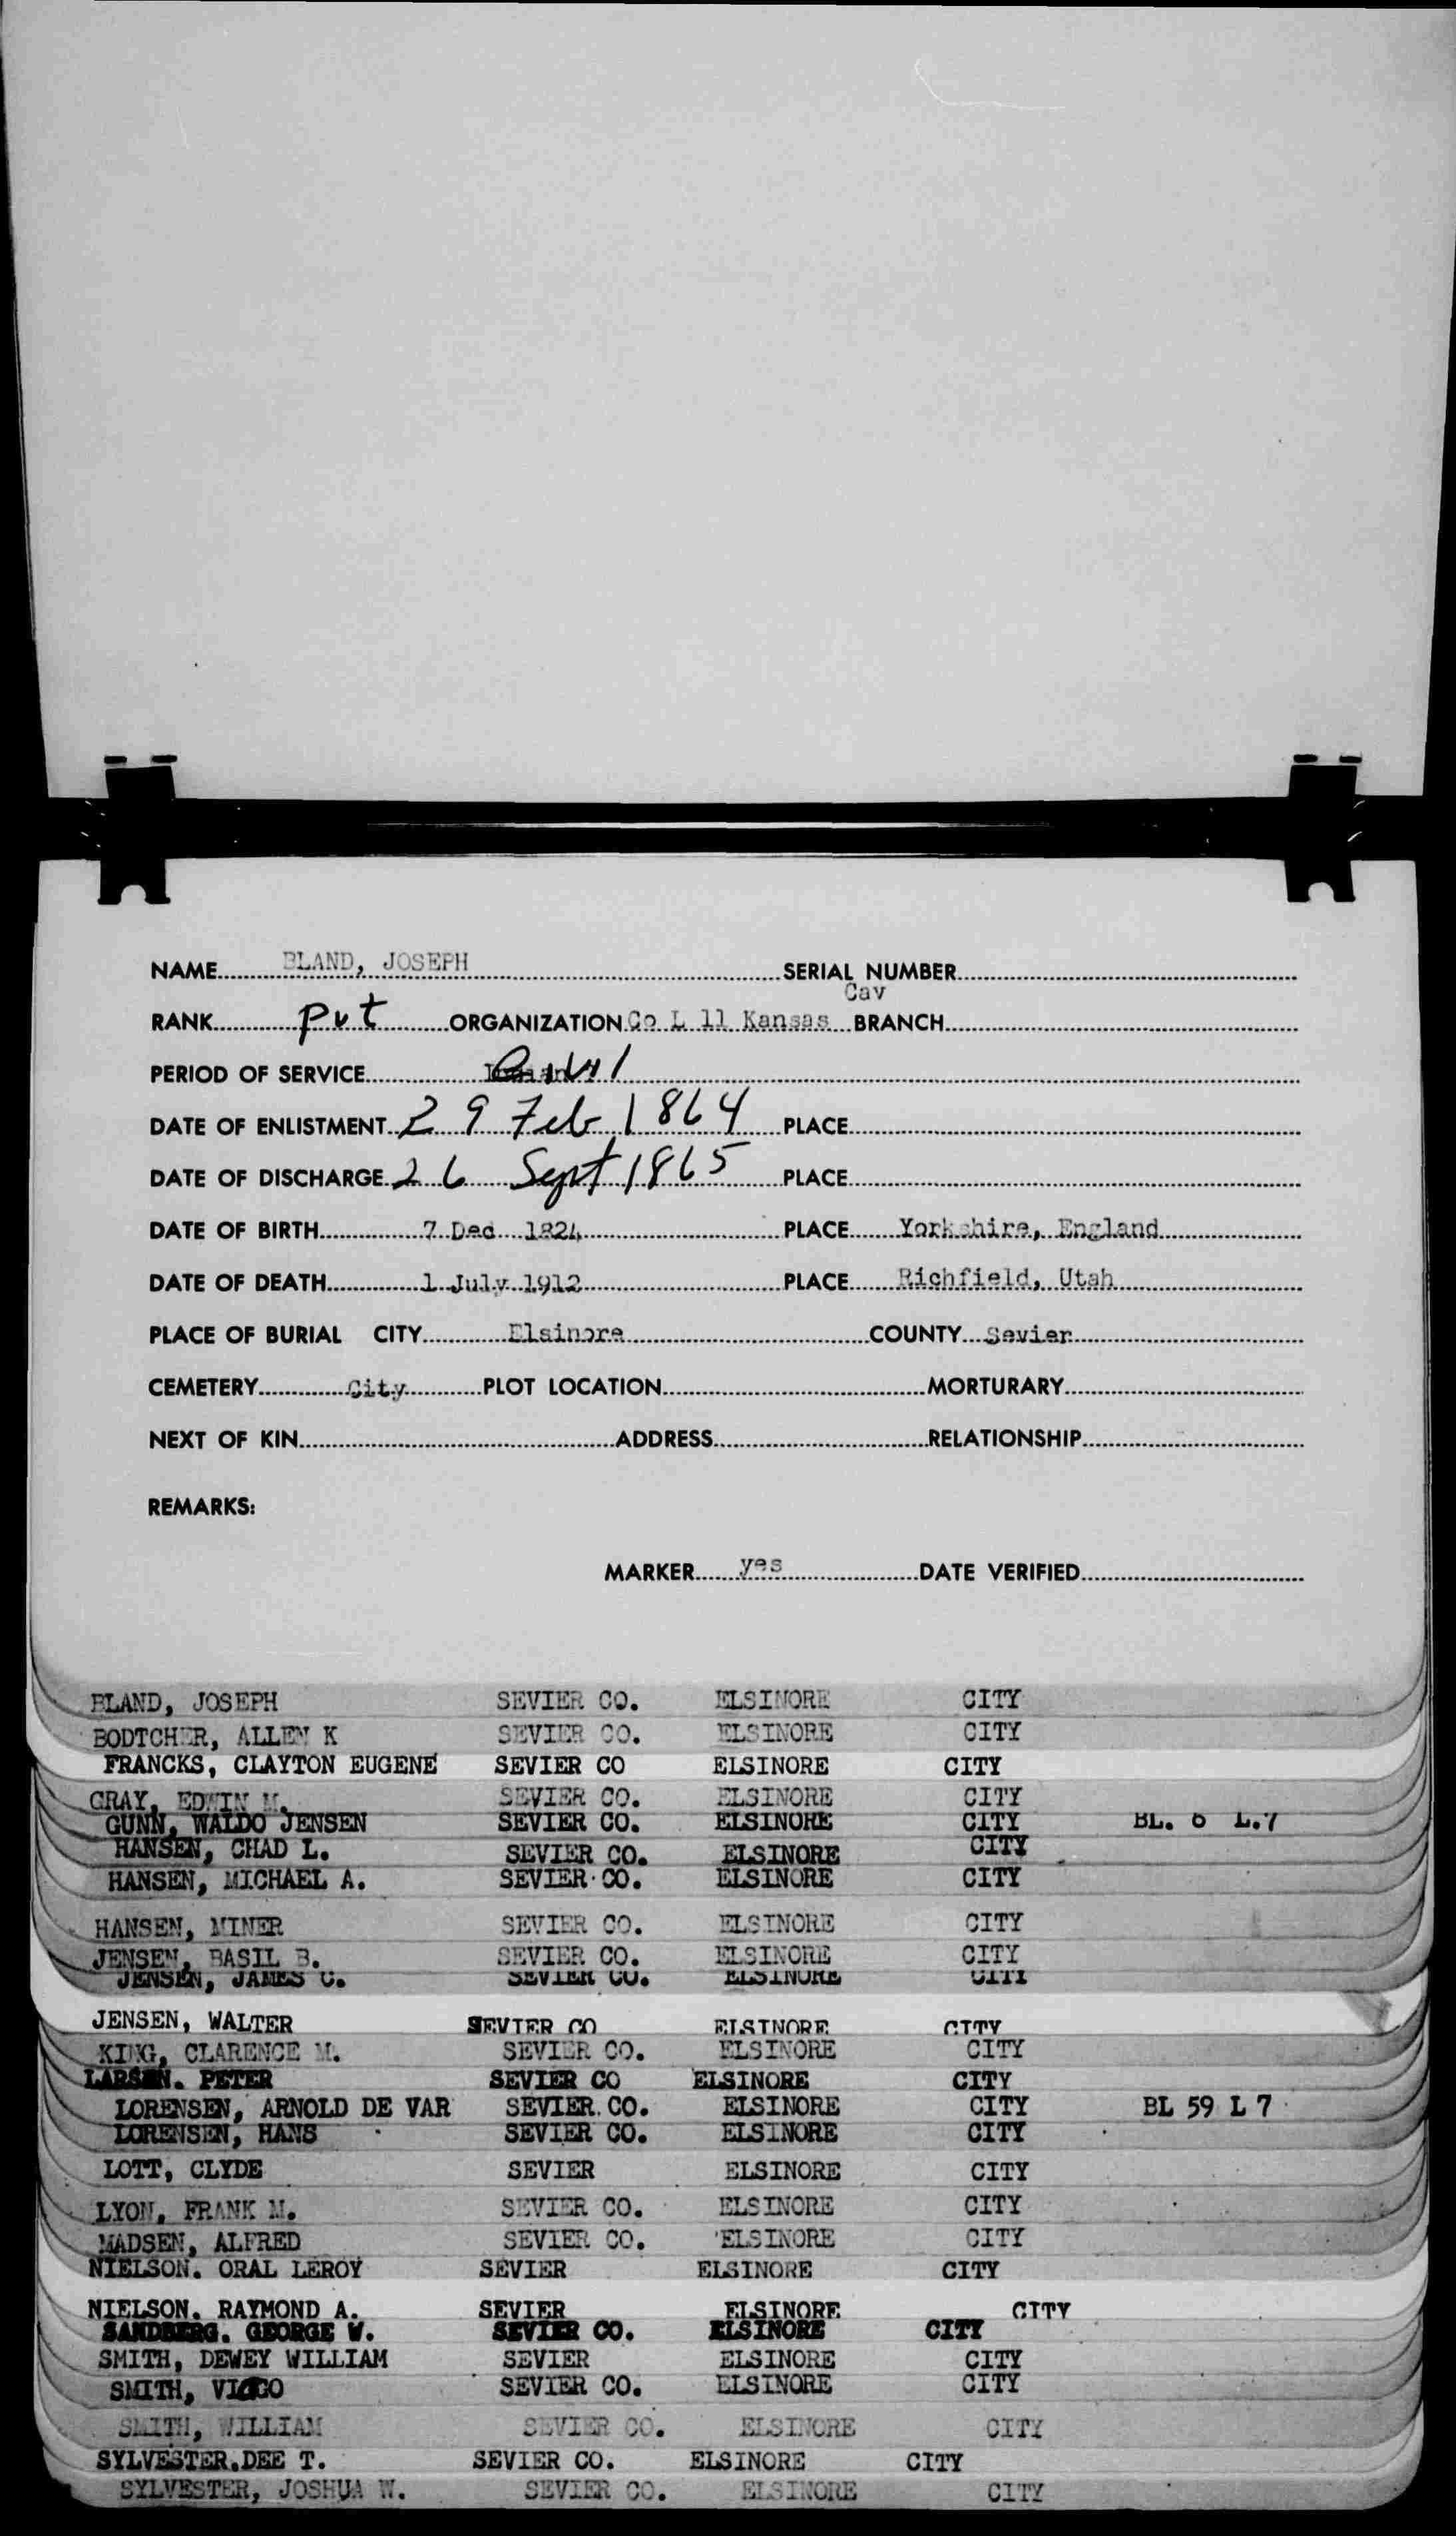 NAME BLAND, JOSEPH SERIAL NUMBER
Cav
RANK Pvt ORGANIZATION Co L 11 Kansas BRANCH
PERIOD OF SERVICE Civil
DATE OF ENLISTMENT 29 Feb 1864 PLACE
DATE OF DISCHARGE 26 Sept 1865 PLACE
DATE OF BIRTH 7 Dec 1824 PLACE Yorkshire, England
DATE OF DEATH 1 July 1912 PLACE Richfield, Utah
PLACE OF BURIAL CITY Elsinore COUNTY Sevier
CEMETERY City PLOT LOCATION MORTURARY
NEXT OF KIN ADDRESS RELATIONSHIP
REMARKS:
MARKER yes DATE VERIFIED
BLAND, JOSEPH SEVIER CO. ELSINORE CITY
BODTCHER, ALLEN K SEVIER CO. ELSINORE CITY
FRANCKS, CLAYTON EUGENE SEVIER CO ELSINORE CITY
GRAY, EDWIN M. SEVIER CO. ELSINORE CITY
GUNN, WALDO JENSEN SEVIER CO. ELSINORE CITY BL. 6 L.7
HANSEN, CHAD L. SEVIER CO. ELSINORE CITY
HANSEN, MICHAEL A. SEVIER CO. ELSINORE CITY
HANSEN, MINER SEVIER CO. ELSINORE CITY
JENSEN, BASIL B. SEVIER CO. ELSINORE CITY
JENSEN, JAMES C. SEVIER CO. ELSINORE CITY
JENSEN, WALTER SEVIER CO ELSINORE CITY
KING, CLARENCE M. SEVIER CO. ELSINORE CITY
LARSEN. PETER SEVIER CO ELSINORE CITY
LORENSEN, ARNOLD DE VAR SEVIER. CO. ELSINORE CITY BL 59 L 7
LORENSEN, HANS SEVIER CO. ELSINORE CITY
LOTT, CLYDE SEVIER ELSINORE CITY
LYON, FRANK M. SEVIER CO. ELSINORE CITY
MADSEN, ALFRED SEVIER CO. ELSINORE CITY
NIELSON. ORAL LEROY SEVIER ELSINORE CITY
NIELSON. RAYMOND A. SEVIER ELSINORE CITY
SANDBERG. GEORGE W. SEVIER CO. ELSINORE CITY
SMITH, DEWEY WILLIAM SEVIER ELSINORE CITY
SMITH, VIGGO SEVIER CO. ELSINORE CITY
SMITH, WILLIAM SEVIER CO. ELSINORE CITY
SYLVESTER.DEE T. SEVIER CO. ELSINORE CITY
SYLVESTER, JOSHUA W. SEVIER CO. ELSINORE CITY